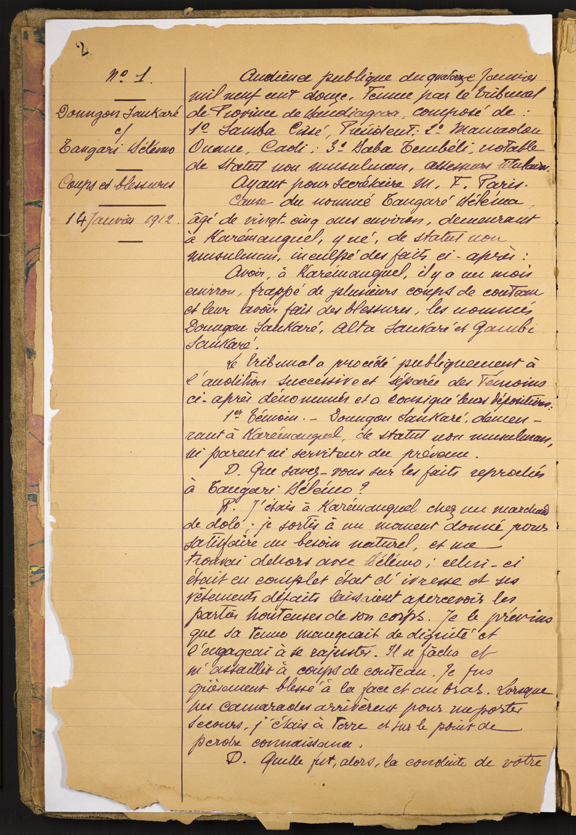 2
Nº 1.
Doungon Sankaré
c/
Tangari Sélémo
Coups et blessures
14 Janvier 1912.
Audience publique du quatorze Janvier
mil neuf cent douze, Tenue par le Tribunal
de Province de Bandiagara, composé de :
1º Samba Cissé, Président : 2º Mamadou
Oumar, Cadi : 3º Saba Tembéli, notable
de statut non musulman, assesseurs
Ayant pour Secrétaire M. F. Paris.
Cause du nommé Tangaré Sélémo,
âgé de vingt cinq ans environ, demeurant
à Karémanguel, y né, de statut non
musulman, inculpé des faits ci-après :
Avoir, à Karémanguel, il y a un mois
environ, frappé de plusieurs coups de couteau
et leur avoir fait des blessures, les nommés
Doungon Sankaré, Alta Sankaré et Gambi
Sankaré.
Le tribunal a procédé publiquement à
l'audition successive et séparée des Témoins
ci-après dénommés et a consigné leurs dépositions.
1er Témoin. - Doungon Sankaré, demeu-
rant à Karémanguel, de statut non musulman,
ni parent ni serviteur du prévenu.
D. Que savez-vous sur les faits reprochés
à Tangari Sélémo ?
R. J'étais à Karémanguel chez un marchand
de dolo : je sortis à un moment donné pour
satisfaire un besoin naturel, et me
trouvai dehors avec Sélémo ; celui-ci
était en complet état d'ivresse et ses
vêtements défaits laissaient apercevoir les
parties honteuses de son corps. Je le prévins
que sa tenue manquait de dignité et
l'engageai à se rajuster. Il se fâcha et
m'assaillit à coups de couteau. Je fus
grièvement blessé à la face et au bras. Lorsque
mes camarades arrivèrent pour me porter
secours, j'étais à terre et sur le point de
perdre connaissance.
D. Quelle fut, alors, la conduite de votre